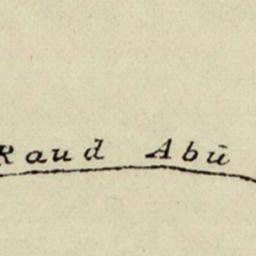 Raud Abū